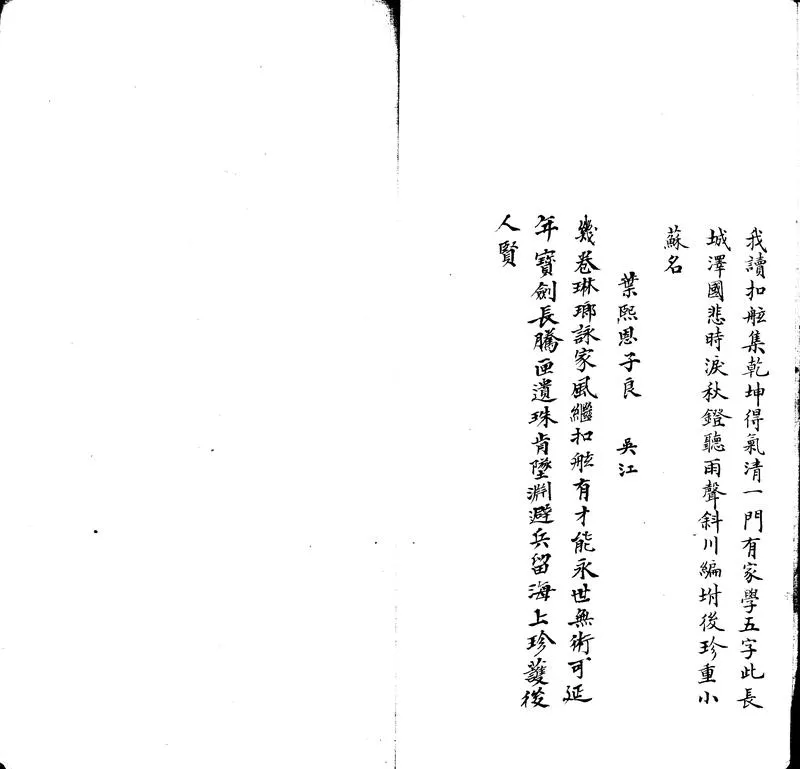 我讀扣舷集乾坤得氣清一門有家學五字此長
城澤國悲時淚秋鐙聽雨聲斜川編坿後珍重小
蘇名
葉熙恩子良　吳江
幾卷琳瑯詠家風繼扣舷有才能永世無術可延
年寶劍長騰匣遺珠肯墜淵避兵留海上珍護後
人賢